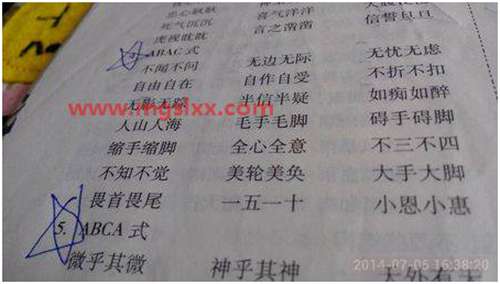 忠心耿耿 喜气洋洋
死气沉沉 言之凿凿 信誓旦旦
虎视眈眈
ABAC 式
不闻不问 无边无际 无忧无虑
自由自在 自作自受 不折不扣
无影无踪 半信半疑 如痴如醉
www.mgslxx.com
人山人海 毛手毛脚 碍手碍脚
缩手缩脚 全心全意 不三不四
不知不觉 美轮美奂 大手大脚
畏首畏尾 一五一十 小恩小惠
5. ABCA 式
微乎其微 神乎其神 天外有天
2014-07-05 16:38:20